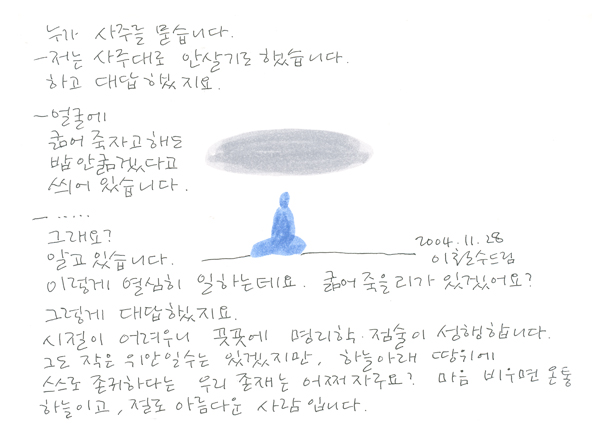 누가 사주를 묻습니다.
-저는 사주대로 안살기로했습니다.
하고 대답했지요.
-얼굴에
굶어죽자고해도
밥안굶겠다고
씌어있습니다.
- .....
그래요?
알고있습니다.
2004.11.28
이철수드림
이렇게 열심히 일하는데요. 굶어죽을리가 있겠어요?
그렇게 대답했지요.
시절이 어려우니 곳곳에 명리학·점술이 성행합니다.
그도 작은 위안일수는 있겠지만, 하늘아래 땅위에
스스로 존귀하다는 우리 존재는 어쩌자구요? 마음 비우면 온통
하늘이고, 절로 아름다운 사람입니다.